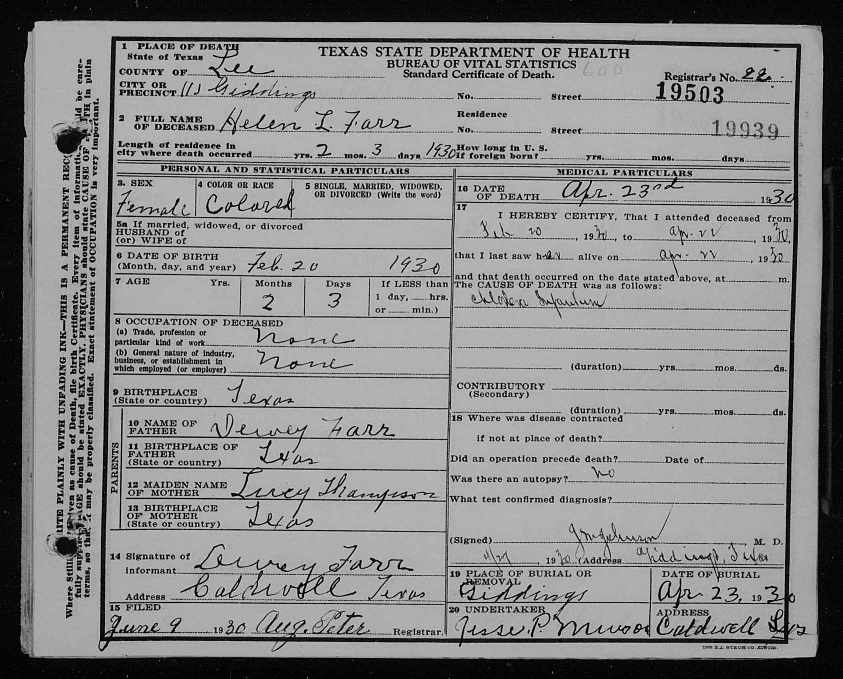 1 PLACE OF DEATH
State of Texas
COUNTY OF Lee
CITY OR PRECINCT Giddings
TEXAS STATE DEPARTMENT OF HEALTH
BUREAU OF VITAL STATISTICS
Standard Certificate of Death.
Registrar's No. 22
No. Street 19503
2 FULL NAME OF DECEASED Helen L. Farr
Residence No. Street 19939
Length of residence in city where death occurred yrs. 2 mos. 3 days 1930
How long in U. S. if foreign born? yrs. mos. days
PERSONAL AND STATISTICAL PARTICULARS
3. SEX
Female
4 COLOR OR RACE
Colored
5 SINGLE, MARRIED, WIDOWED, OR DIVORCED (Write the word)
5a If married, widowed, or divorced
HUSBAND OF
(or) WIFE of
6 DATE OF BIRTH
(Month, day, and year) Feb. 20 1930
7 AGE Yrs. Months Days If LESS than
2 3 1 day, hrs.
or min.)
8 OCCUPATION OF DECEASED
(a) Trade, profession or particular kind of work None
(b) General nature of industry, business, or establishment in which employed (or employer) None
9 BIRTHPLACE
(State or country) Texas
PARENTS
10 NAME OF FATHER Dewey Farr
11 BIRTHPLACE OF FATHER
(State or country) Texas
12 MAIDEN NAME OF MOTHER Lucy Thompson
13 BIRTHPLACE OF MOTHER
(State or country) Texas
14 Signature of Informant Dewey Farr
Address Caldwell Texas
15 FILED
June 9 1930 Aug. Peter Registrar.
MEDICAL PARTICULARS
16 DATE OF DEATH Apr. 23rd 1930
17
I HEREBY CERTIFY, That I attended deceased from
Feb 20, 1930, to Apr. 22, 1930,
that I last saw her alive on Apr. 22, 1930
and that death occurred on the date stated above, at m.
THE CAUSE OF DEATH was as follows:
Cholera Infantum
(duration) yrs. mos. ds.
CONTRIBUTORY
(Secondary)
(duration) yrs. mos. ds.
18 Where was disease contracted
if not at place of death?
Did an operation precede death? Date of
Was there an autopsy? No
What test confirmed diagnosis?
(Signed) Johnson M. D.
, 1930 (Address Giddings, Texas
19 PLACE OF BURIAL OR REMOVAL
Giddings
DATE OF BURIAL
Apr 23, 1930
20 UNDERTAKER
Jesse P.
ADDRESS
Caldwell